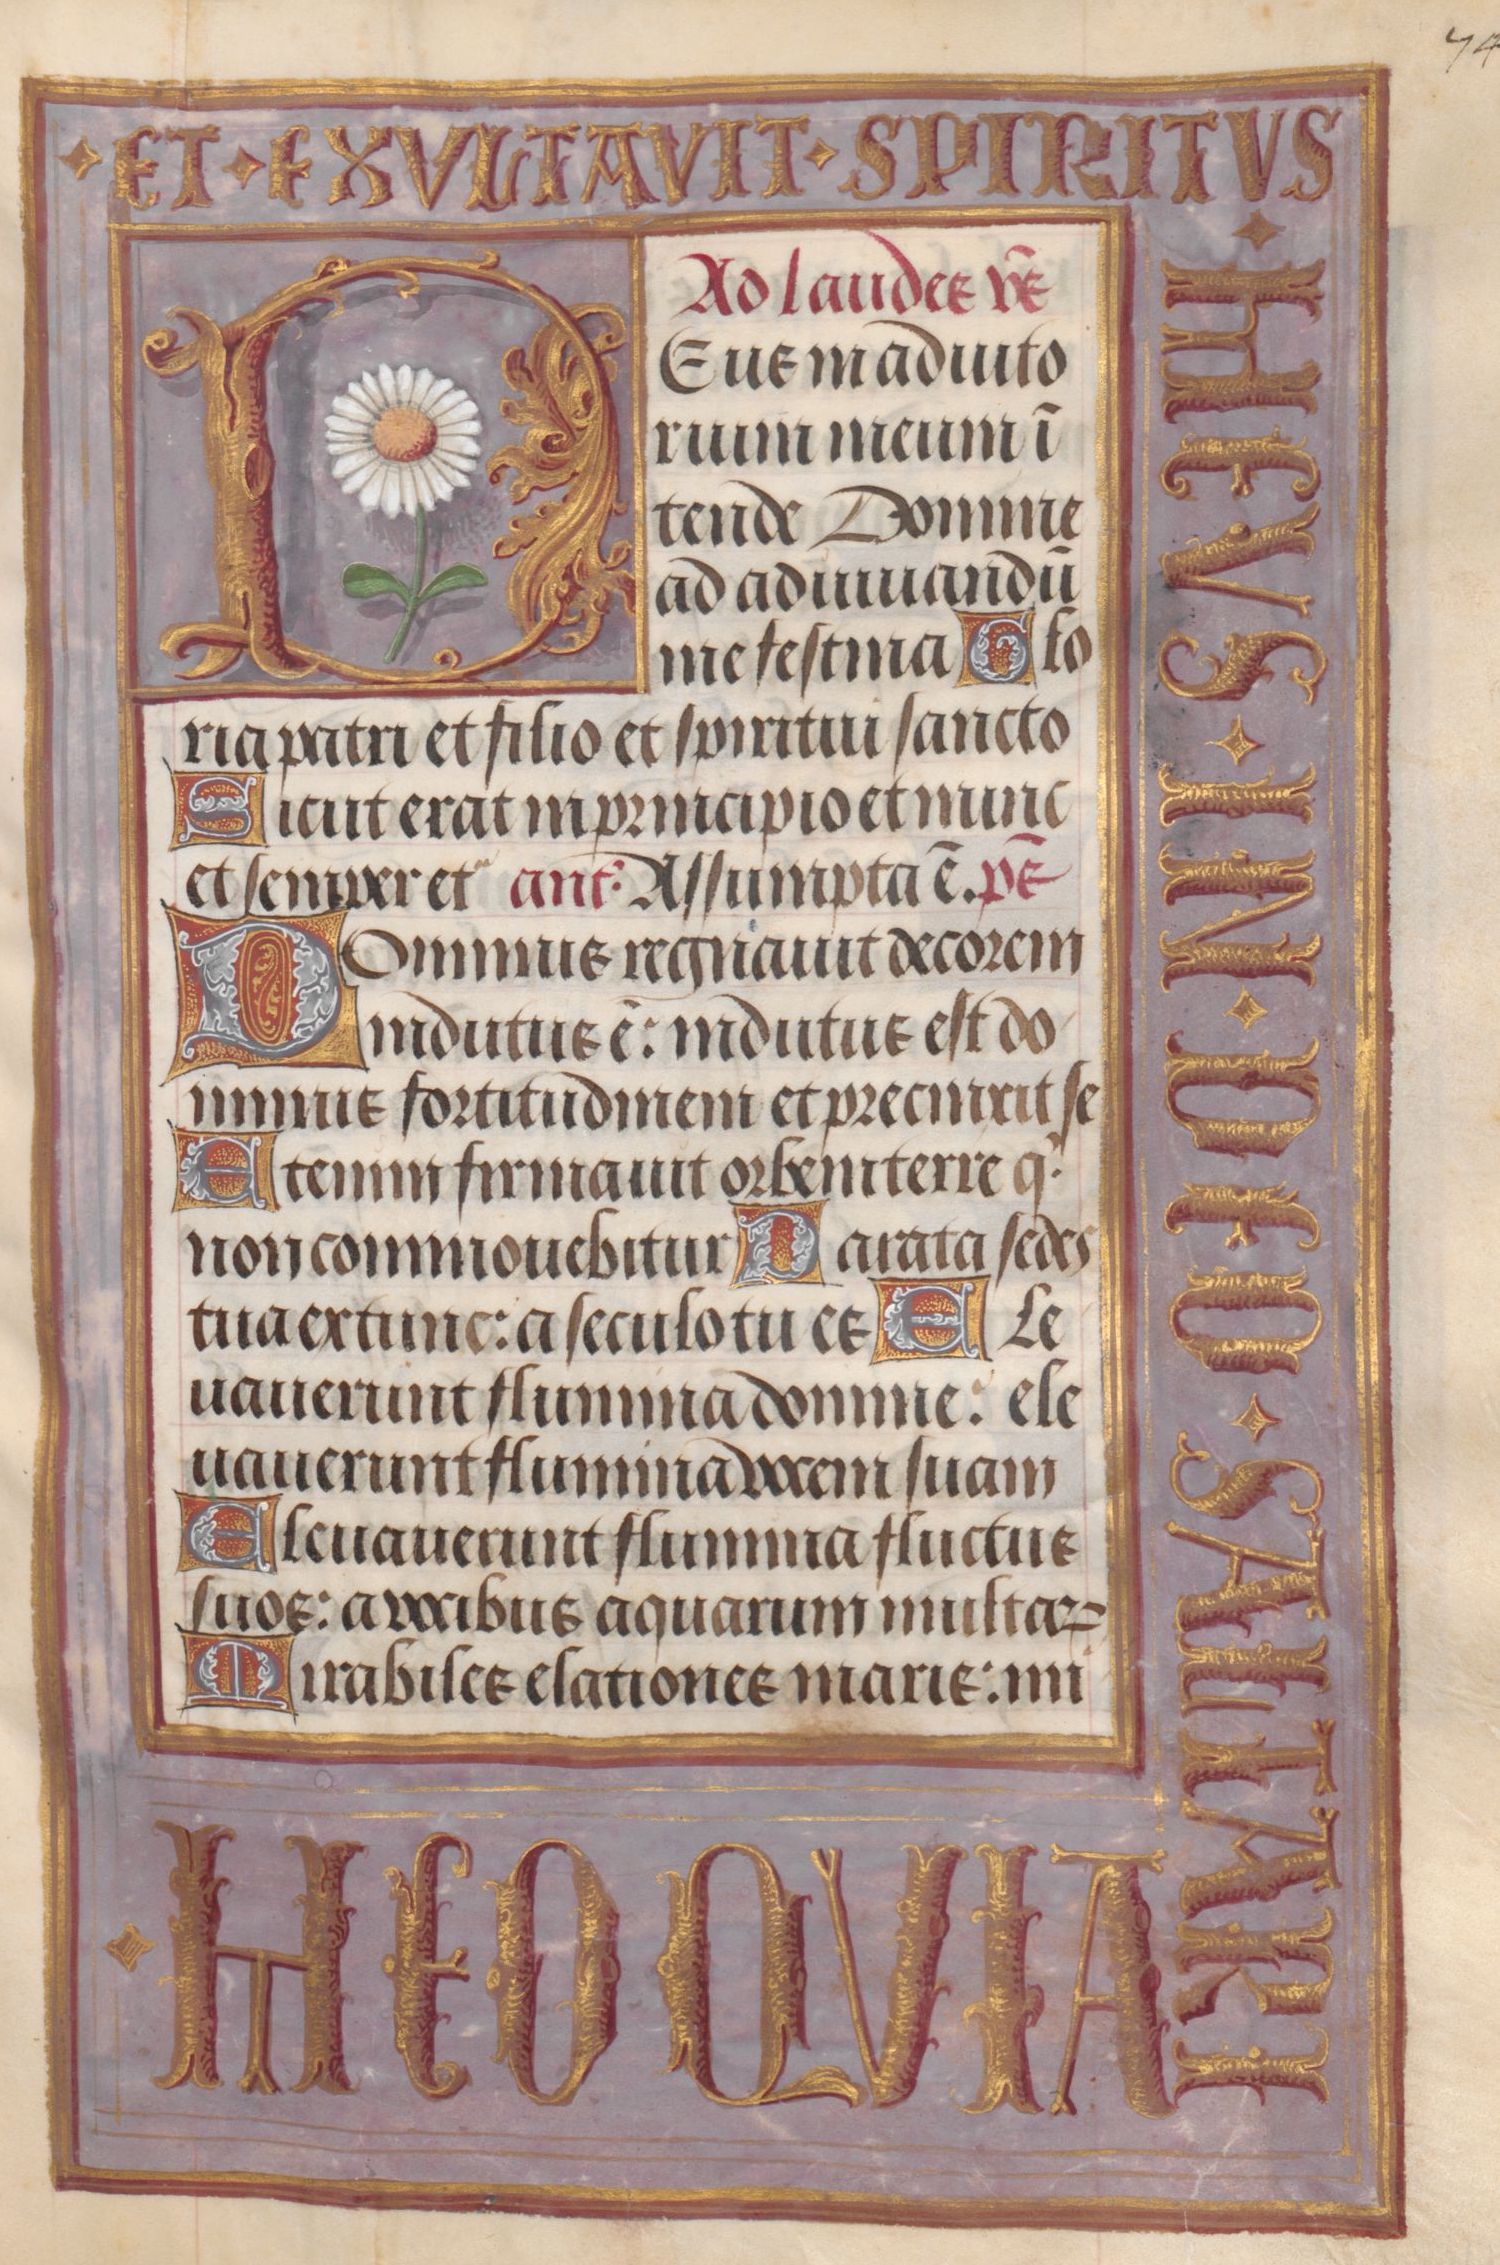 74
ET · EXVLTAVIT · SPIRITVS
· HEVS · IN · DEO · SALVTARI
· HEO QVIA
D
Ad laudes vẽ
Eus in adiuto
rium meum ĩ
tende Domine
ad adiuuandũ
me festina Glo
ria patri et filio et spiritui sancto
Sicut erat in principio et nunc
et semper et ant. Assumpta ẽ. pẽ
DOminus regnauit decorem
indutus ẽ: indutus est do
minus fortitudinem et precinxit se
Etenim firmauit orbem terre q'
non commouebitur Parata sedes
tua ex tunc: a seculo tu es Ele
uauerunt flumina domine: ele
uauerunt flumina vocem suam
Eleuauerunt flumina fluctus
suos: a vocibus aquarum multaꝝ
Mirabiles elationes maris: mi